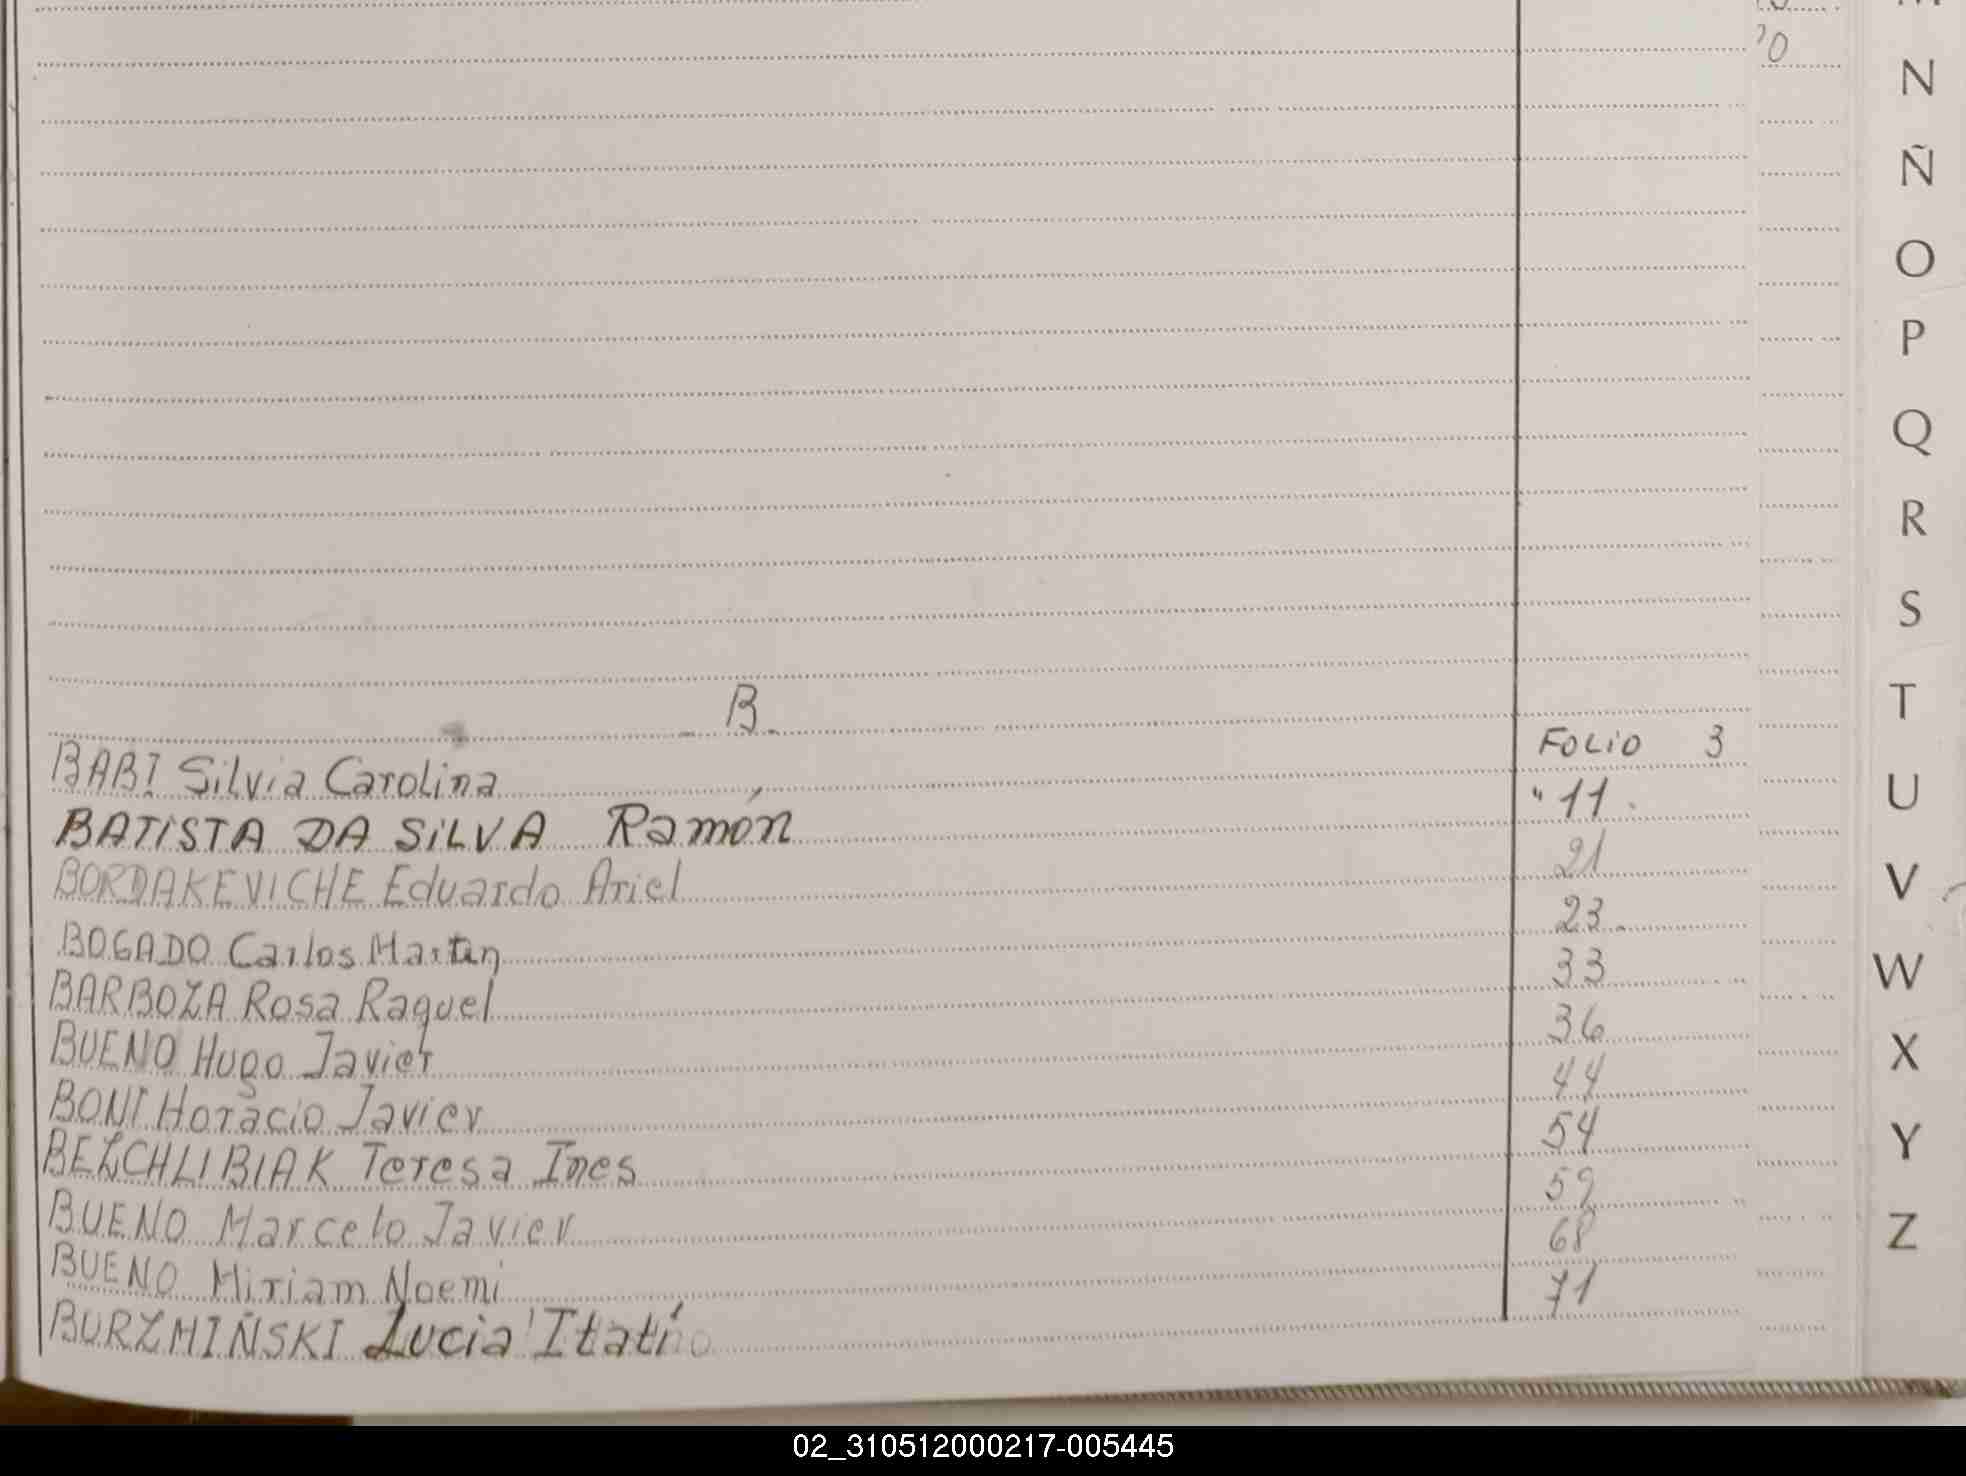 - B.
BABI Silvia Carolina FOLIO 3
BATISTA DA SILVA Ramón " 11.
BORDAKEVICHE Eduardo Ariel 21
BOGADO Carlos Martin 23.
BARBOZA Rosa Raquel 33
BUENO Hugo Javier 36
BONI Horacio Javier 44
BEZCHLIBIAK Teresa Ines 54
BUENO Marcelo Javier 59
BUENO Miriam Noemi 68
BURZMIÑSKI Lucia Itatí 71
N
Ñ
O
P
Q
R
S
T
U
V
W
X
Y
Z
02_310512000217-005445